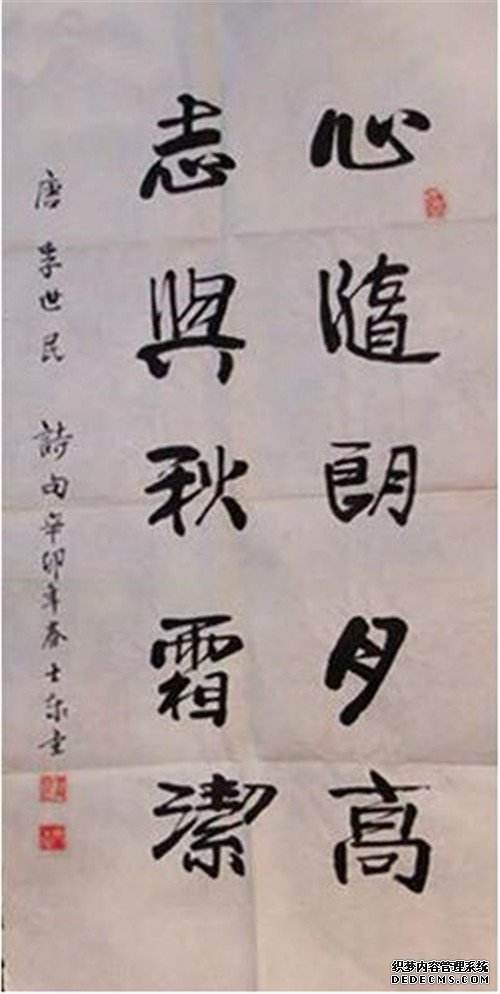 心隨朗月高
志與秋霜潔
唐李世民詩句辛卯年春士東書
织梦内容管理系统
DEDECMS.COM